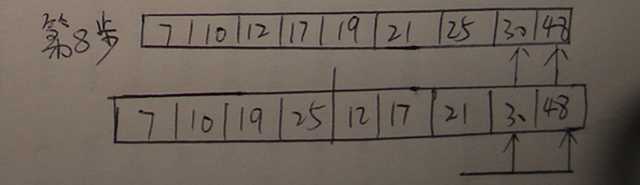 第8步 7 10 12 17 19 21 25 30 48
7 10 19 25 12 17 21 30 48